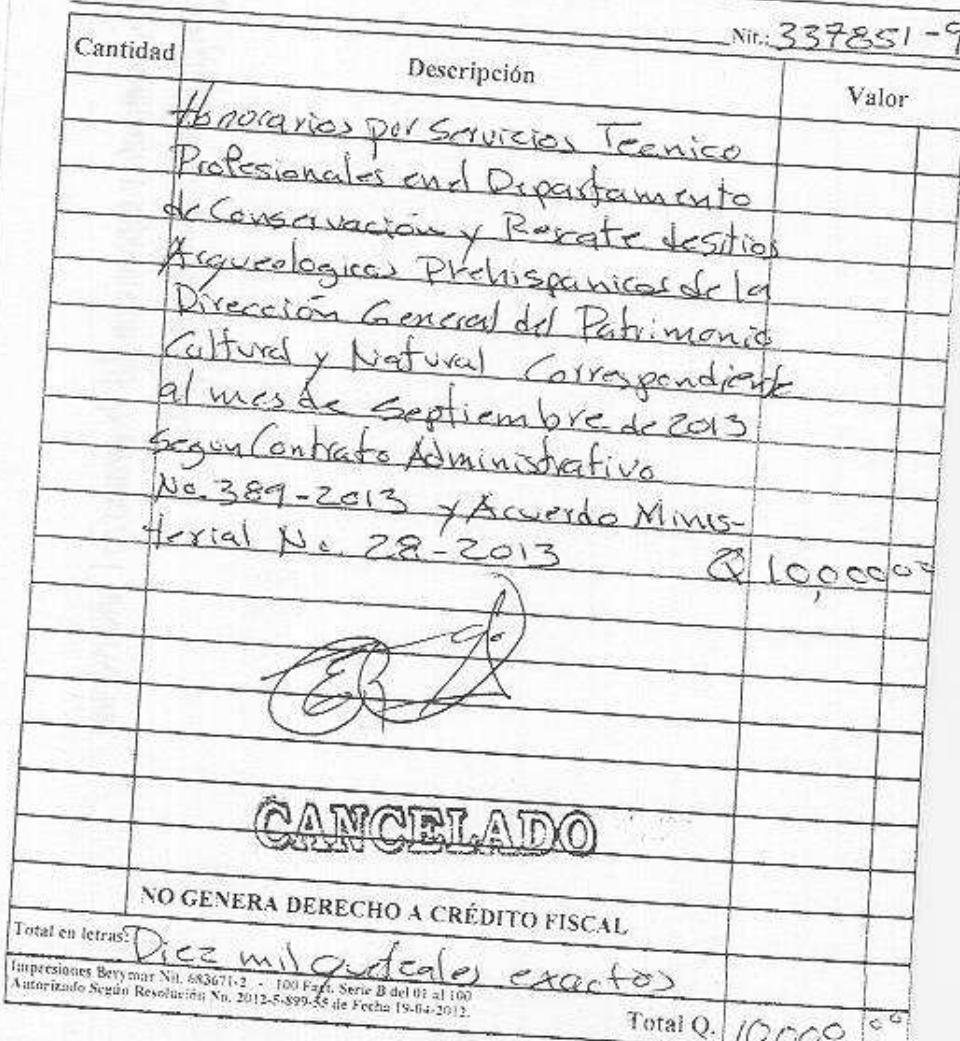 Nit.: 337851-9
Cantidad Descripción Valor
Honorarios por Servicios Tecnico
Profesionales en el Departamento
de Conservación y Rescate de sitios
Arqueologicos Prehispanicos de la
Dirección General del Patrimonio
Cultural y Natural Correspondiente
al mes de Septiembre de 2013
Segun Contrato Administrativo
No. 389-2013 y Acuerdo Minis-
terial No. 28-2013 Q 10,000 00
CANCELADO
NO GENERA DERECHO A CRÉDITO FISCAL
Total en letras: Diez mil quetzales exactos
Impresiones Berymar Nit. 683671-2 - 100 Fact. Serie B del 01 al 100
Autorizado Según Resolución No. 2012-5-899-55 de Fecha 19-04-2012.
Total Q. 10,000 00